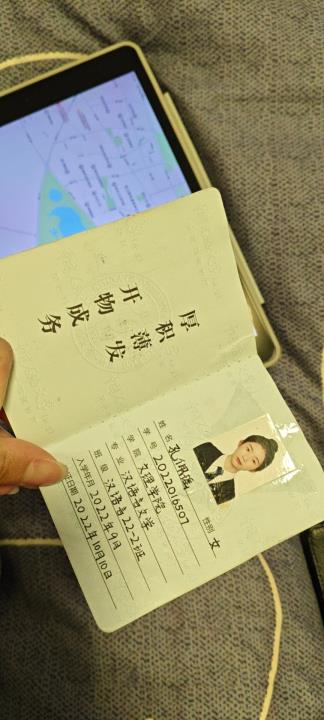 厚积薄发
开物成务
姓名 孔佩
性别 女
学号 2022016507
学院 文理学院
专业 汉语言文学
班级 汉语言22-2班
入学年月 2022年9月
日期 2022年10月10日